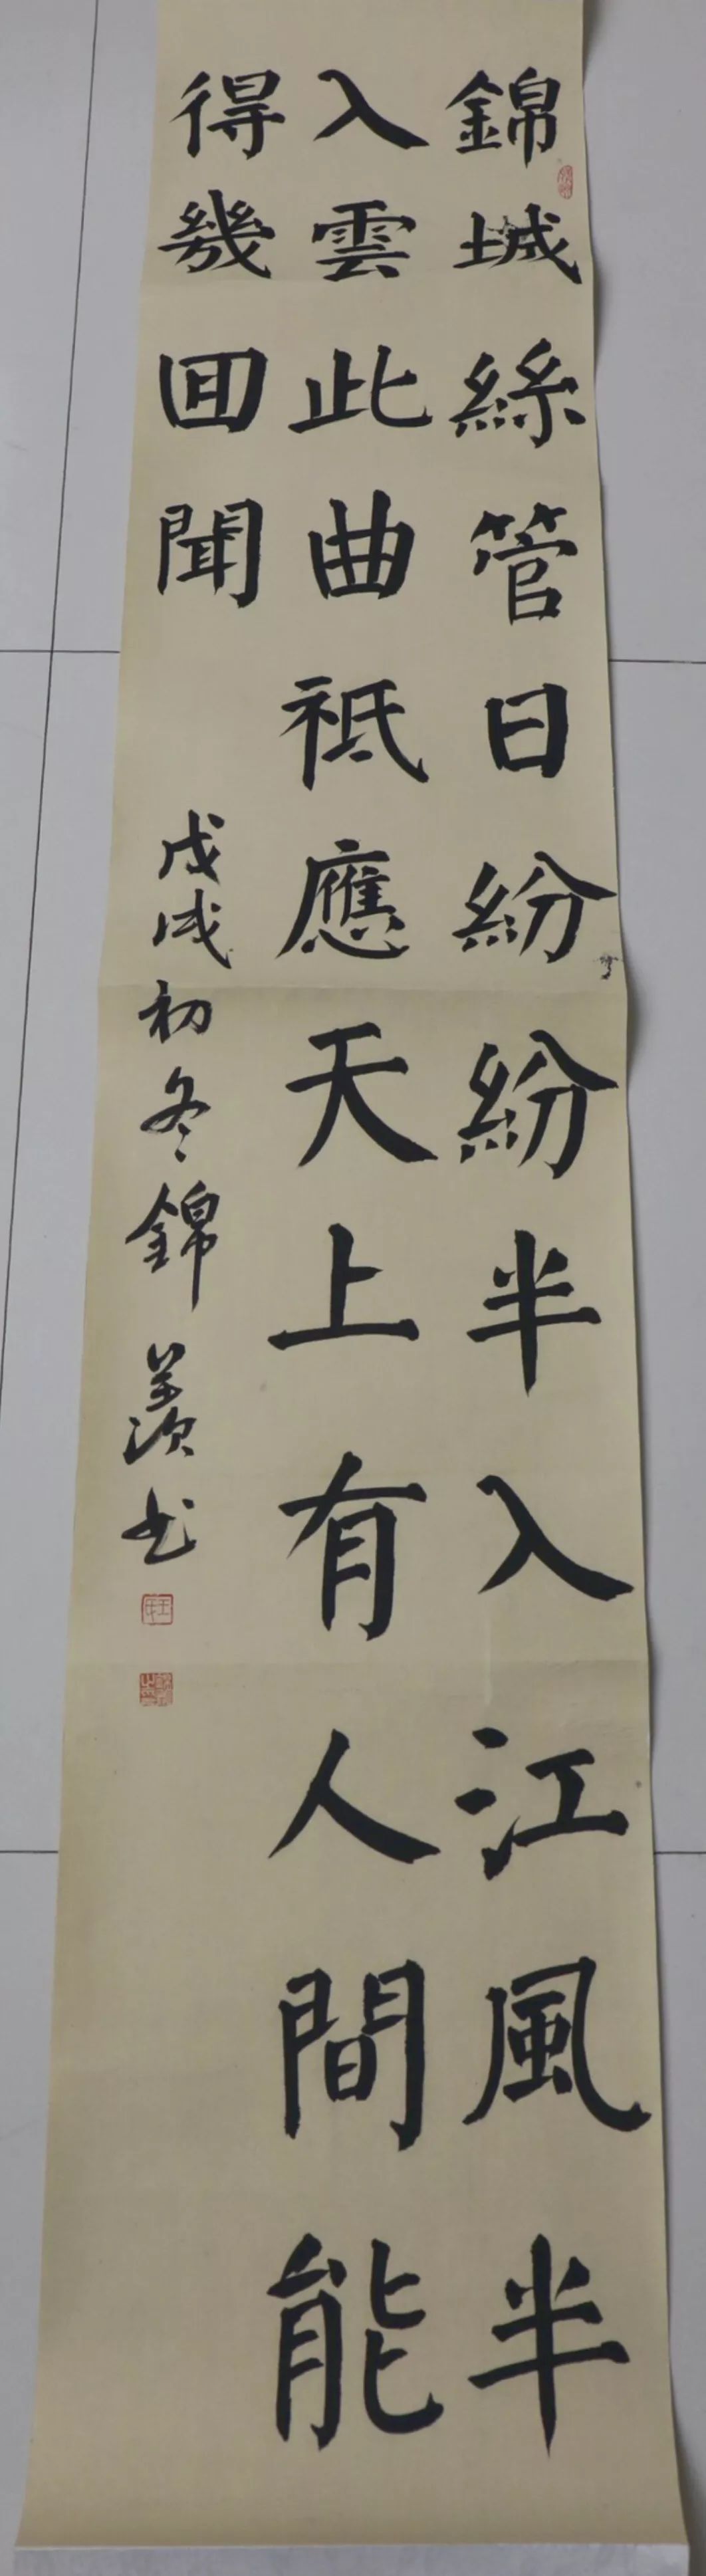 錦城絲管日紛紛半入江風半
入雲此曲祗應天上有人間能
得幾回聞
戊戌初冬錦羨书